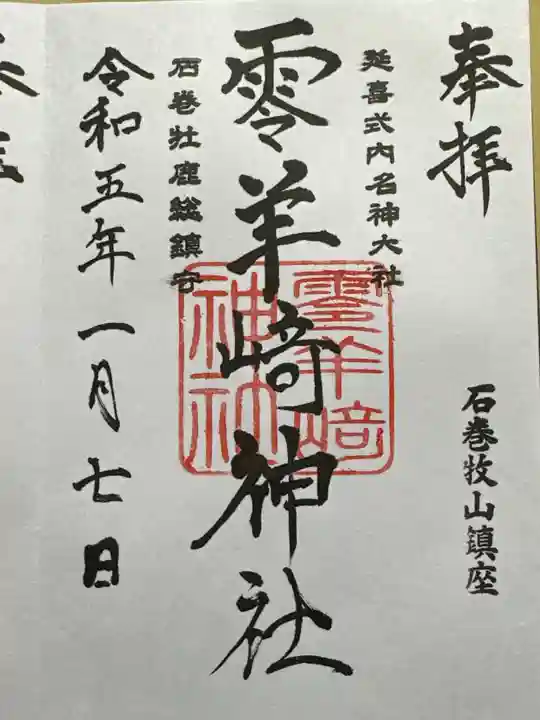 奉拝
石巻牧山鎮座
延喜式内名神大社
零羊崎神社
零羊崎
神社
石巻牡鹿総鎮守
令和五年一月七日